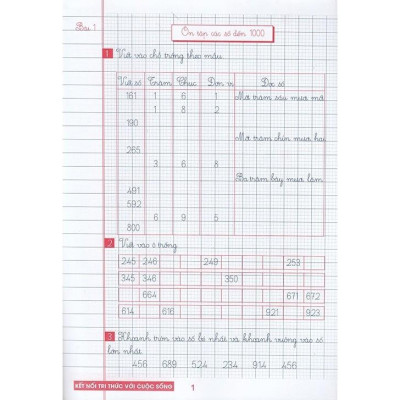 Bài 1
Ôn tập các số đến 1000
1 Viết vào chỗ trống theo mẫu.
Viết số Trăm Chục Đơn vị Đọc số
161 1 6 1 Một trăm sáu mươi mốt
1 8 2
190
Một trăm chín mươi hai
265
3 6 8
Ba trăm bảy mươi lăm
491
592
6 9 5
800
2 Viết vào ô trống
245 246 249 253
345 346 350
664 671 672
614 616 921 923
3 Khoanh tròn vào số bé nhất và khoanh vuông vào số
lớn nhất.
456 689 524 234 914 456
KẾT NỐI TRI THỨC VỚI CUỘC SỐNG 1